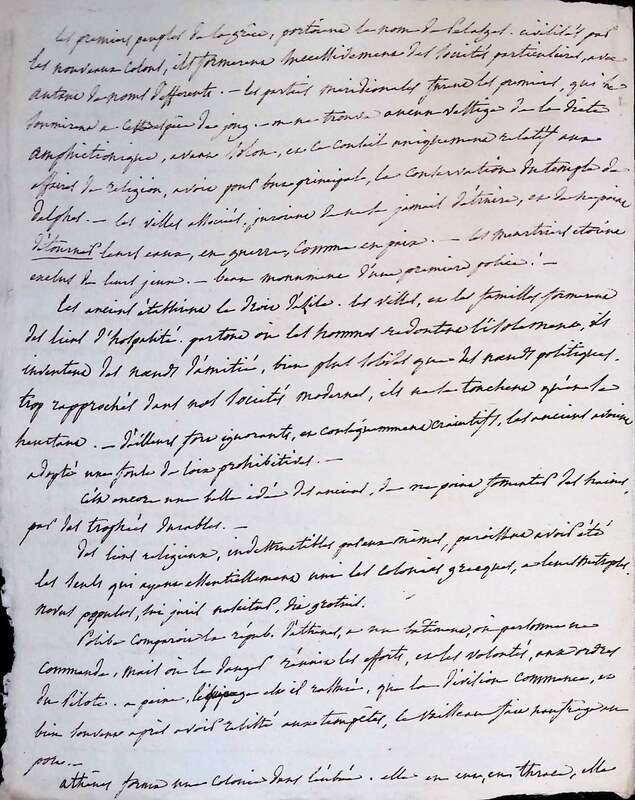 les premiers peuples de la grèce, portoient le nom de Pelasges. civilisés par
les nouveaux colons, ils formerent successivement des sociétés particulieres, avec
autant de noms differents. — les parties meridionales furent les premieres, qui se
soumirent a cette espèce de joug. — on ne trouve aucun vestige de la diete
amphictionique, avant solon, et ce conseil uniquement relatif aux
affaires de religion, avoit pour but principal, la conservation du temple de
delphes. — les villes associées, juroient de ne se jamais détruire, et de ne point
détourner leurs eaux, en guerre, comme en paix. — les meurtriers étoient
exclus de leurs jeux. — beau monument d'une premiere police! —
les anciens établirent le droit d'asile. les villes, et les familles formerent
des liens d'hospitalité. partout où les hommes redoutent l'isolement, ils
inventent des nœuds d'amitié, bien plus solides que des nœuds politiques.
trop rapprochés dans nos sociétés modernes, ils ne se touchent qu'en se
heurtant. — d'ailleurs fort ignorants, et conséquemment craintifs, les anciens avoient
adopté une foule de loix prohibitives. —
C'est encore une belle idée des anciens, de ne point fomenter des haines,
par des trophées durables. —
des liens religieux, indestructibles par eux mêmes, paroissent avoir été
les seuls qui ayent essentiellement uni les colonies grecques, a leurs métropoles.
novus populus, sui juris dit grotius.
Polibe comparoit la répub. d'athènes, a un bâtiment, où personne ne
commande, mais où le danger réunit les efforts, et les volontés, aux ordres
du Pilote. a peine, l'équipage est il rassuré, que la division commence, et
bien souvent après avoir résisté aux tempêtes, le vaisseau fait naufrage au
port. —
athènes forma une colonie dans l'eubée. elle en eut, en thrace, elle